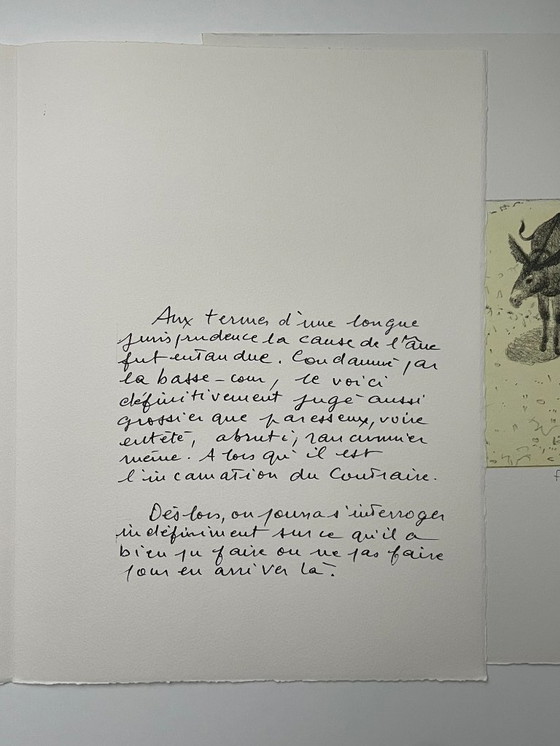 Aux termes d'une longue
jurisprudence la cause de l'âne
fut entendue. Condamné par
la basse-cour, le voici
définitivement jugé aussi
grossier que paresseux, voire
entêté, abruti, rancunier
même. Alors qu'il est
l'incarnation du Contraire.
Dès lors, on pourra s'interroger
indéfiniment sur ce qu'il a
bien pu faire ou ne pas faire
pour en arriver là.